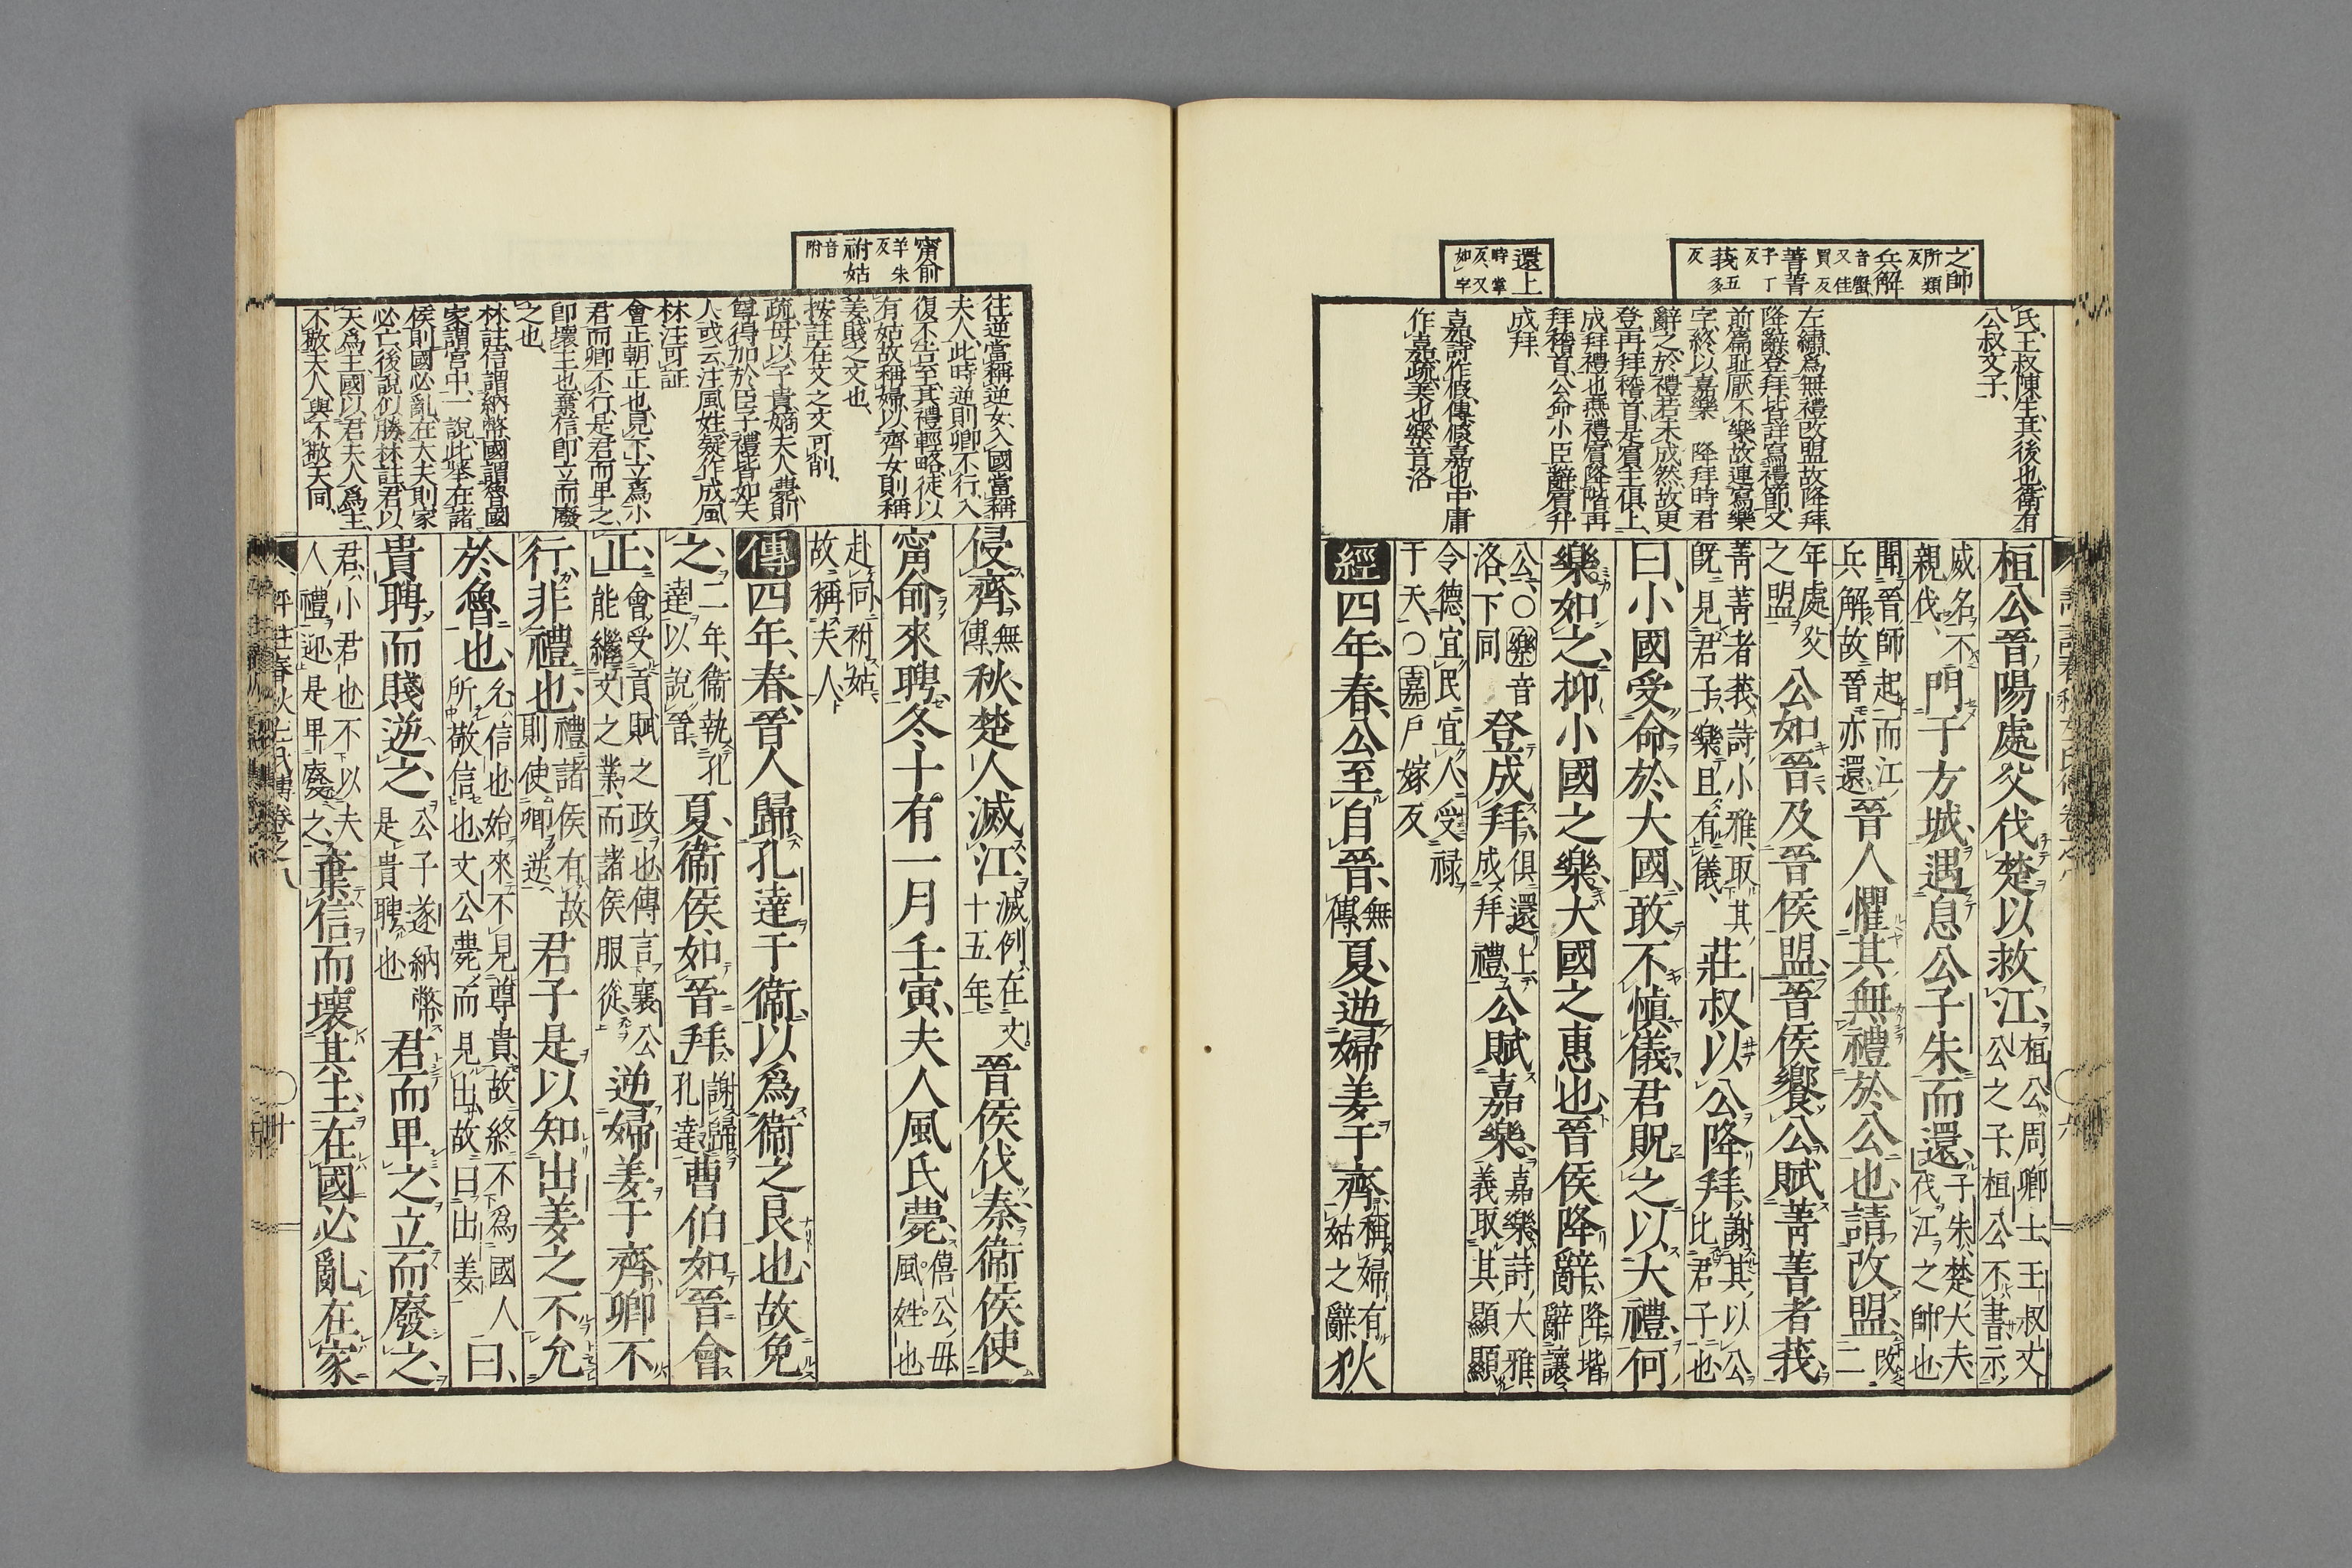 之帥
所類
反
兵解
音蟹
又佳
買反
菁菁
子丁
反
莪五多
反
還上
時掌
反、又
如字
氏、王叔陳生、其後也、衛有
公叔文子、
左繡爲無禮改盟故降拜
降辭登拜、皆詳寫禮節、又
前篇耻厭不樂故連寫樂
字、終以嘉樂 降拜時君
辭之、於禮若未成然、故更
登再拜稽首、是賓主俱上、
成拜禮也、燕禮賓降階再
拜稽首、公命小臣辭、賓升
成拜、
嘉、詩作假、傳假嘉也、中庸
作嘉、疏美也、樂音洛
桓公晉陽處父伐楚以救江、桓公、周卿士、王叔文
公之子、桓公不書、示
威名不
親伐、門于方城、遇息公子朱而還、子朱、楚大夫、
伐江之帥也
聞晉師起而江
兵解、故晉亦還晉人懼其無禮於公也、請改盟、改二
年處父
之盟公如晉、及晉侯盟、晉侯饗公、賦菁菁者莪、
菁菁者莪、詩小雅、取其
旣見君子、樂且有儀、莊叔以公降拜、謝其以公
比君子也
曰、小國受命於大國、敢不愼儀、君貺之以大禮、何
樂如之、抑小國之樂、大國之惠也、晉侯降辭、降階
辭讓
公、○樂音
洛、下同登成拜、俱還上
成拜禮、公賦嘉樂、嘉樂、詩大雅、
義取其顯顯
令德、宜民宜人、受祿
于天、○嘉戶嫁反
經四年、春、公至自晉、無
傳夏、逆婦姜于齊、稱婦、有
姑之辭狄
甯俞
羊朱
反
祔姑
音
附
往逆當稱逆女、入國當稱
夫人、此時逆則卿不行、入
復不告至、其禮輕略、徒以
有姑故稱婦、以齊女則稱
姜、賤之文也、
按註在文之文可削、
疏母以子貴、嫡夫人薨、則
尊得加於臣子、禮皆如夫
人、或云、注風姓、疑作成風
林注可証
會正朝正也、見下、立爲小
君而卿不行、是君而卑之、
卽壞主也、棄信、卽立而廢
之也、
林註、信謂納幣、國謂魯國
家謂宮中、一說、此挙在諸
侯則國必亂、在大夫則家
必亡、後說似勝、林註、君以
天爲主、國以君夫人爲主、
不敬夫人、與不敬天同、
侵齊、無
傳秋、楚人滅江、滅例、在文
十五年、晉侯伐秦、衞侯使
甯俞來聘、冬、十有一月、壬寅、夫人風氏薨、僖公母
風姓也
赴同祔姑、
故稱夫人、
傳四年、春、晉人歸孔達于衞、以爲衞之良也、故免
之、二年、衞執孔
達以說晉、夏、衞侯如晉拜、謝歸
孔達曹伯如晉會
正、會受貢賦之政也、傳言襄公
能繼文之業、而諸侯服從、逆婦姜于齊、卿不
行、非禮也、禮、諸侯有故
則使卿逆君子是以知出姜之不允
於魯也、允、信也、始來不見尊貴、故終不爲國人
所敬信也、文公薨而見出、故曰出姜曰、
貴聘而賤逆之、公子遂納幣
是貴聘也君而卑之、立而廢之、
君、小君也、不以夫
人禮迎、是卑廢之、棄信而壞其主、在國必亂、在家